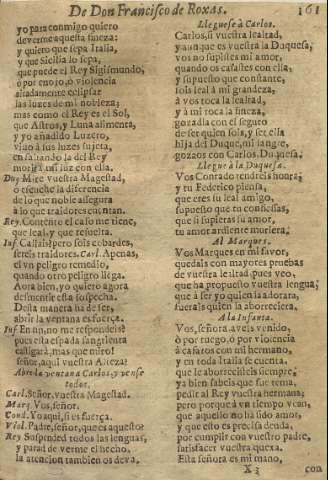 De Don Francisco de Roxas.
161
yo para conmigo quiero
deverme aquesta fineza:
y quiero que sepa Italia,
y que Sicilia lo sepa,
que puede el Rey Sigismundo,
ò por enojo, ò violencia
airadamente eclipsar
las luzes de mi nobleza;
mas como el Rey es el Sol,
que Astros, y Luna alimenta,
y yo añadido Luzero,
vivo à sus luzes sujeta,
en faltando la del Rey
morirà mi luz con ella.
Duq. Mire vuestra Magestad,
ò escuche la diferencia
de lo que noble assegura
à lo que traidores cuentan.
Rey. Conente el caso me tiene,
que leal, y que resuelta.
Inf. Callais? pero sois cobardes,
sereis traidores. Carl. Apenas,
el vn peligro remedio,
quando otro peligro llega.
Aora bien, yo quiero agora
desmentir esta sospecha.
Desta manera ha de ser,
abrir la ventana es fuerça.
Inf. En fin, no me respondeis?
pues esta espada sangrienta
castigarà, mas que miro!
señor, aqui vuestra Alteza?
Abre la ventana Carlos, y vense
todos.
Carl. Señor, vuestra Magestad.
Marq. Vos, señor.
Cond. Yo aqui, si es fuerça.
Viol. Padre, señor, que es aquesto?
Rey Suspended todos las lenguas,
y parad de verme el hecho,
la atencion tambien os deva.
Lleguese à Carlos.
Carlos, si vuestra lealtad,
y aunque es vuestra la Duquesa,
vos no supistes mi amor,
quando os casastes con ella;
y supuesto que constante,
sois leal à mi grandeza,
à vos toca la lealtad,
y à mi toca la fineza,
gozadla con el seguro
de ser quien sois, y ser ella
hija del Duque, mi sangre,
gozaos con Carlos, Duquesa.
Llegue à la Duquesa.
Vos Conrado tendreis honra;
y tu Federico piensa,
que eres su leal amigo,
supuesto que tu confiessas,
que si supieras su amor,
tu amor ardiente muriera.
Al Marques.
Vos Marques en mi favor,
quedais con mayores pruebas
de vuestra lealtad, pues veo,
que ha propuesto vuestra lengua,
que à ser yo quien la adorara,
fuerais quien la aborreciera.
A la Infanta.
Vos, señora, aveis venido,
ò por ruego, ò por violencia
à casaros con mi hermano,
y en toda Italia se cuenta,
que le aborrecisteis siempre;
ya bien sabeis que fue tema,
pedir al Rey vuestra hermana;
pero porque à vn tiempo vean,
que aquello no ha sido amor,
y que esto es precisa deuda,
por cumplir con vuestro padre,
satisfacer vuestra quexa.
Esta señora es mi mano,
X 3
con